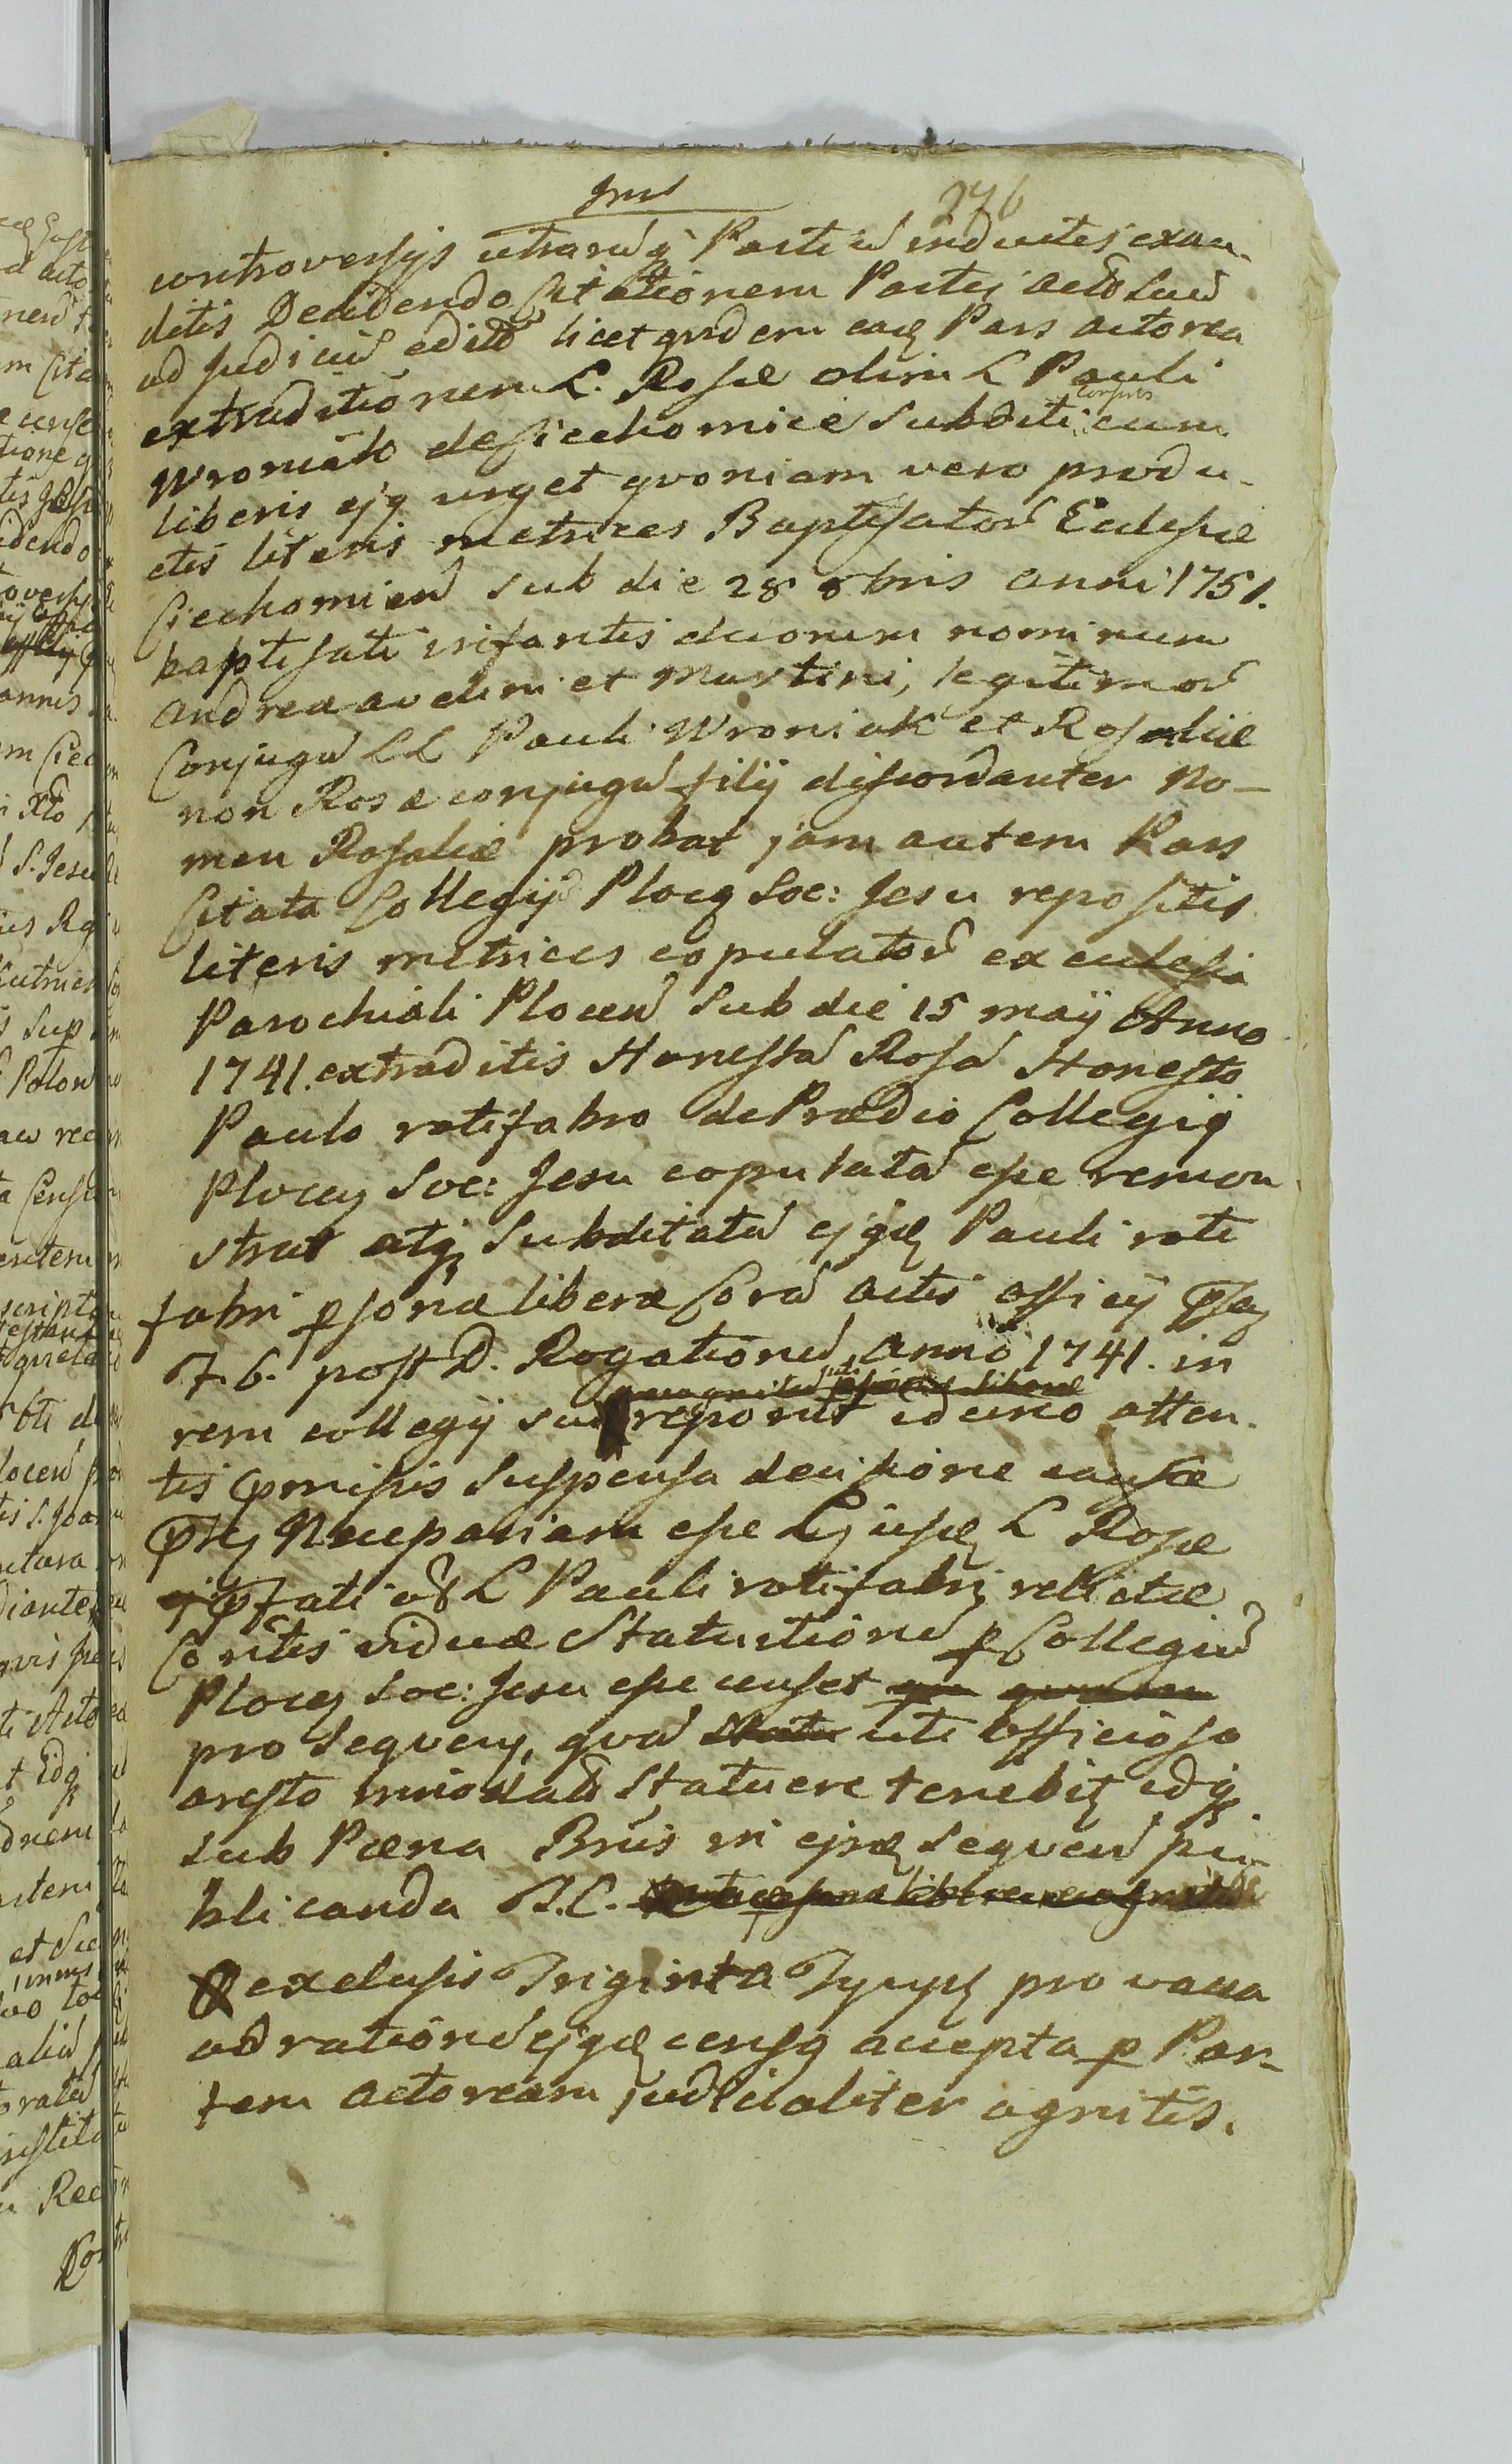 276
controversijs utrarūq Partiū inductis exau-
ditis Decidendo Citationem Partis actoreæ
ad Judiciū editā licet quidem eadē Pars actorea
extraditionem L. Rosæ olim L Pauli
Wroniak de Ciechomice subditi Conjūs cum
liberis ejq urget qvoniam vero produ-
ctis literis metrices Baptisatorū Ecclesiæ
Ciechomicen̄ sub die 28 8bris anni 1751.
baptisati infantis duorum nominum
Andreæ avelini et Martini, legitimorū
Conjugū LL Pauli Wroniak et Rosaliæ
non Rosæ conjugū filij discordanter No-
men Rosaliæ probat jam autem Pars
Citata Collegij Plocen Soc: Jesu repositis
literis metrices copulatorū ex ecclesia
Parochiali Plocen̄ sub die 15 maij Anno
1741. extraditis Honestā Rosā Honesto
Paulo rotifabro de Prædio Collegij
Plocen Soc: Jesu copulatā esse remon-
strat atq Subditatū ejqd Pauli roti
fabri psonæ liberæ Corā actis officij
F. 6. post D. Rogationū anno 1741. in
rem collegij sui reponit idcirco atten-
tis præmissis suspensa decisione causæ
Necessariam esse L Rosæ
præfati oł L Pauli rotifabri relictæ
Conthis viduæ Statuitionē p Collegiū
Plocen Soc: Jesu esse censet
pro Sequen, qvā uti officioso
aresto innodatā Statuere tenebit idq
sub Pæna Bnis in ejsd Sequen̄ pu-
blicanda
exclusis Triginta Tynph pro vacca
ad rationē ejqd censq accepta p Par-
tem actoream judicialiter agnitis.